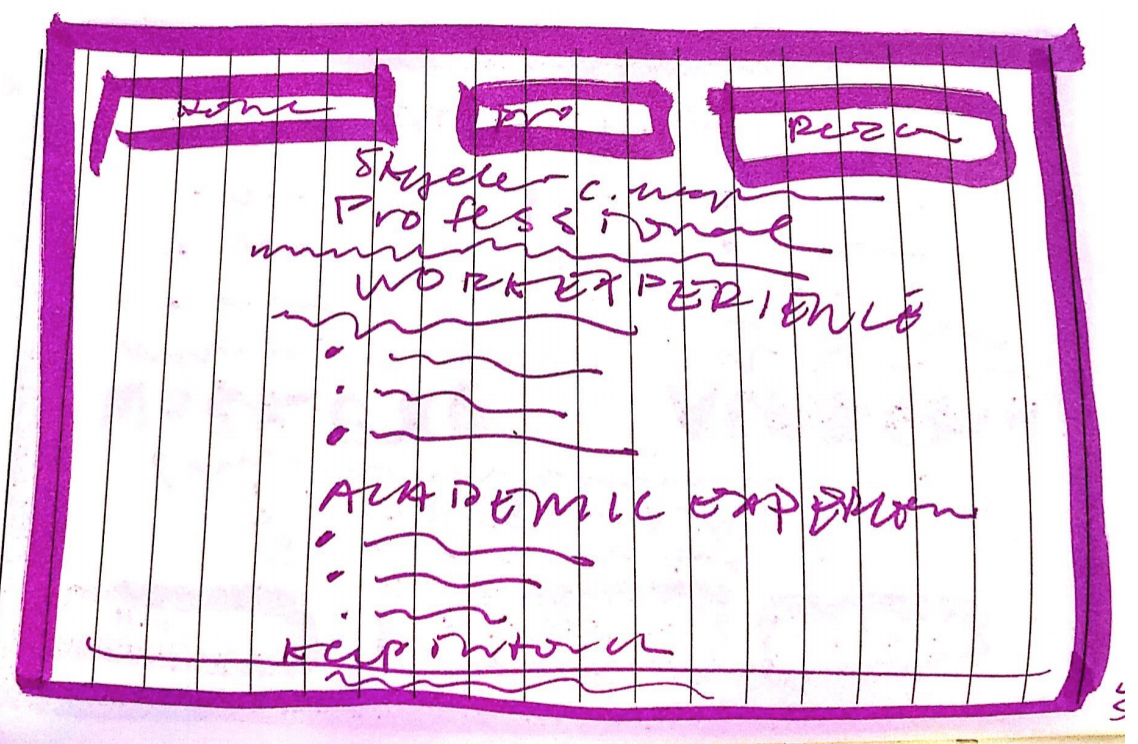 Home Pro
Skyeler C.
Professional
WORK EXPERIENCE
ACADEMIC
Keep in touch